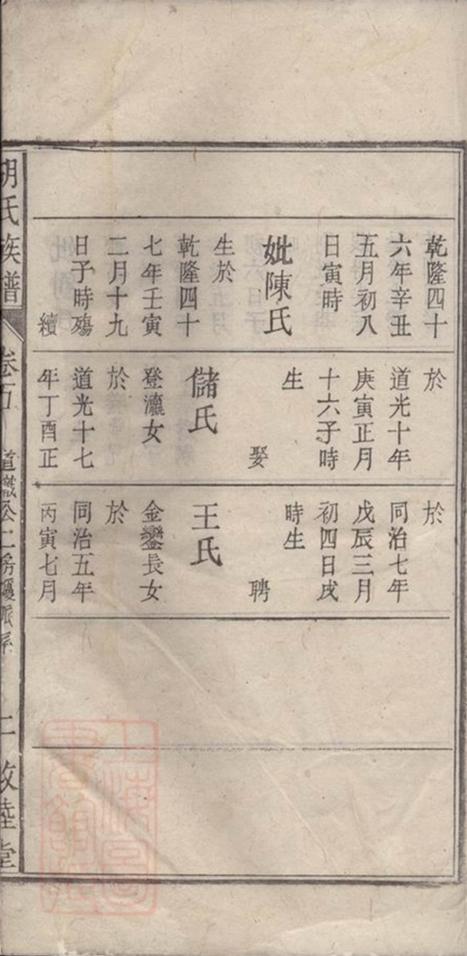 乾隆四十
六年辛丑
五月初八
日寅時
妣陳氏
生於
乾隆四十
七年壬寅
二月十九
日子時殤
續
於
道光十年
庚寅正月
十六子時
生
娶
儲氏
登瀛女
於
道光十七
年丁酉正
於
同治七年
戊辰三月
初四日戌
時生
聘
王氏
金鑾長女
於
同治五年
丙寅七月
胡氏族譜
卷
二房
敦睦堂